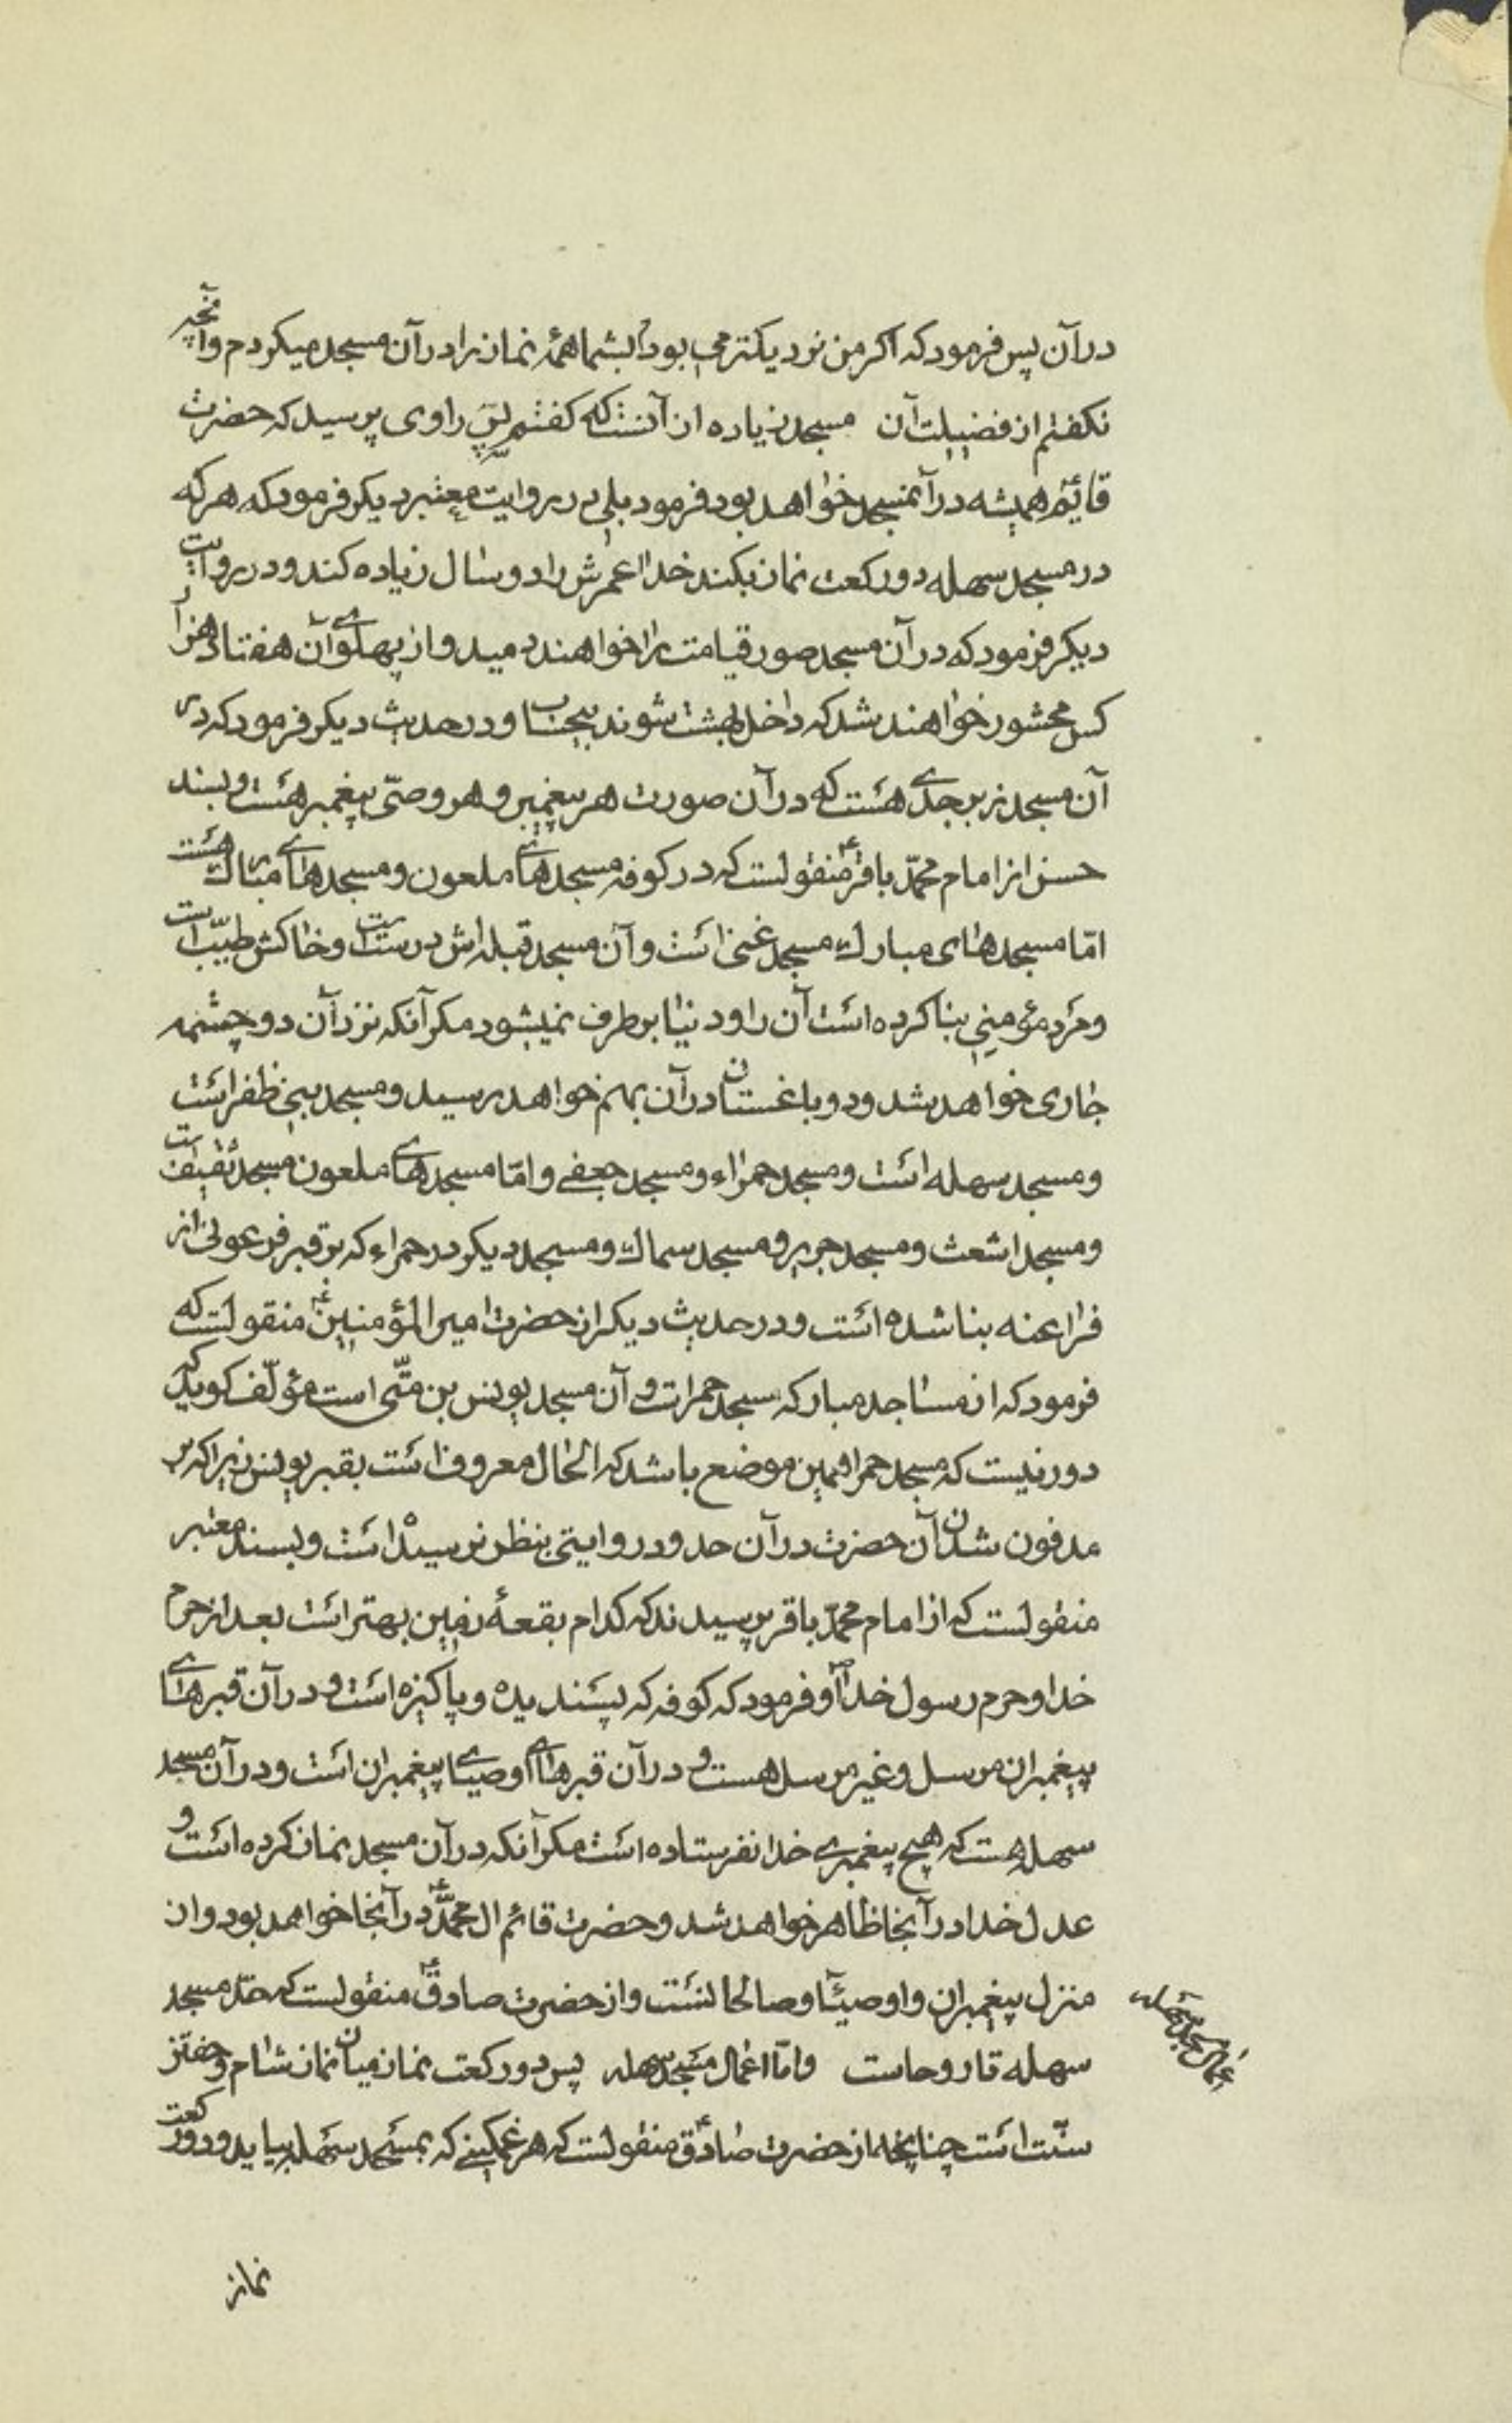 درآن پس فرمود که اکر من نزدیکتر می بودم بشما همهٔ نماز را درآن مسجد میکردم و آنچه
نکفتم از فضیلت آن مسجد زیاده از آنست که کفتم پس راوی پرسید که حضرت
قائم همیشه در آنمسجد خواهد بود فرمود بلی در روایت معتبر دیکر فرمود که هر که
در مسجد سهله دو رکعت نماز بکند خدا عمرش را دو سال زیاده کند و در روایت
دیکر فرمود که در آن مسجد صور قیامت را خواهند دمید و از پهلوی آن هفتاد هزار
کس محشور خواهند شد که داخل بهشت شوند بیحساب و در حدیث دیکر فرمود که در
آن مسجد زبرجدی هست که در آن صورت هر پیغمبر و هر وصیّ پیغمبر هست و بسند
حسن از امام محمّد باقر ع منقولست که در کوفه مسجدهای ملعون و مسجدهای مبارک هست
امّا مسجدهای مبارک مسجد غنی است و آن مسجد قبله اش درست است و خاکش طیّب است
و مرد مؤمنی بنا کرده است آن را و دنیا برطرف نمیشود مکر آنکه نزد آن دو چشمه
جاری خواهد شد و دو باغستان در آن بهم خواهد رسید و مسجد بنی ظفر است
و مسجد سهله است و مسجد حمراء و مسجد جعفی و امّا مسجدهای ملعون مسجد ثقیف است
و مسجد اشعث و مسجد جریر و مسجد سماک و مسجد دیکر در حمراء که بر قبر فرعونی از
فراعنه بنا شده است و در حدیث دیکر از حضرت امیر المؤمنین ع منقولست که
فرمود که از مساجد مبارکه مسجد حمرا است و آن مسجد یونس بن متّی است مؤلّف کوید که
دور نیست که مسجد حمرا همین موضع باشد که الحال معروف است بقبر یونس زیرا که بر
مدفون شدن آن حضرت در آن حدود روایتی بنظر نرسیده است و بسند معتبر
منقولست که از امام محمّد باقر پرسیدند که کدام بقعهٔ زمین بهتر است بعد از حرم
خدا و حرم رسول خدا ص او فرمود که کوفه که پسندیده و پاکیزه است و در آن قبرهای
پیغمبران مرسل و غیر مرسل هست و در آن قبرهای اوصیای پیغمبران است و در آن مسجد
سهله هست که هیچ پیغمبری خدا نفرستاده است مکر آنکه در آن مسجد نماز کرده است و
عدل خدا در آنجا ظاهر خواهد شد و حضرت قائم ال محمّد ع در آنجا خواهد بود و ان
منزل پیغمبران و اوصیآ و صالحانست و از حضرت صادق ع منقولست که حدّ مسجد
سهله تا روحاست و امّا اعمال مسجد سهله پس دو رکعت نماز میان نماز شام و خفتن
سنّت است چنانچه از حضرت صادق ع منقولست که هر غمکینی که بمسجد سهله بیاید و دو رکعت
اعمال مسجد سهله
نماز